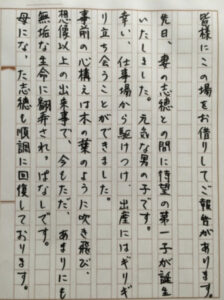 皆様にこの場をお借りしてご報告があります。
先日、妻の志穂との間に待望の第一子が誕生
いたしました。元気な男の子です。
幸い、仕事場から駆けつけ、出産にはぎりぎ
り立ち会うことができました。
事前の心構えは木の葉のように吹き飛び、
想像以上の出来事で、今もただ、あまりにも
無垢な生命に翻弄されっぱなしです。
母になった志穂も順調に回復しております。